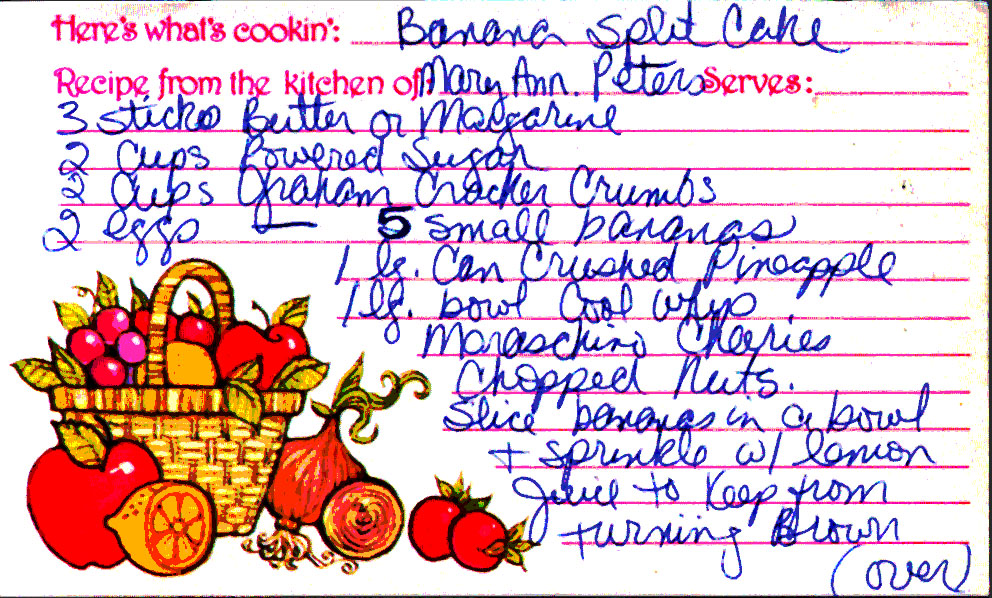 Here's what's cookin': Banana Split Cake
Recipe from the kitchen of Mary Ann. Peters Serves:
3 sticks Butter or Margarine
2 Cups Powered Sugar
2 Cups Graham Cracker Crumbs
2 eggs — 5 small bananas
1 lg. Can Crushed Pineapple
1 lg. bowl Cool Whip
Maraschino Cherries
Chopped Nuts.
Slice bananas in a bowl
+ sprinkle w/ lemon
Juice to Keep from
turning Brown
(over)